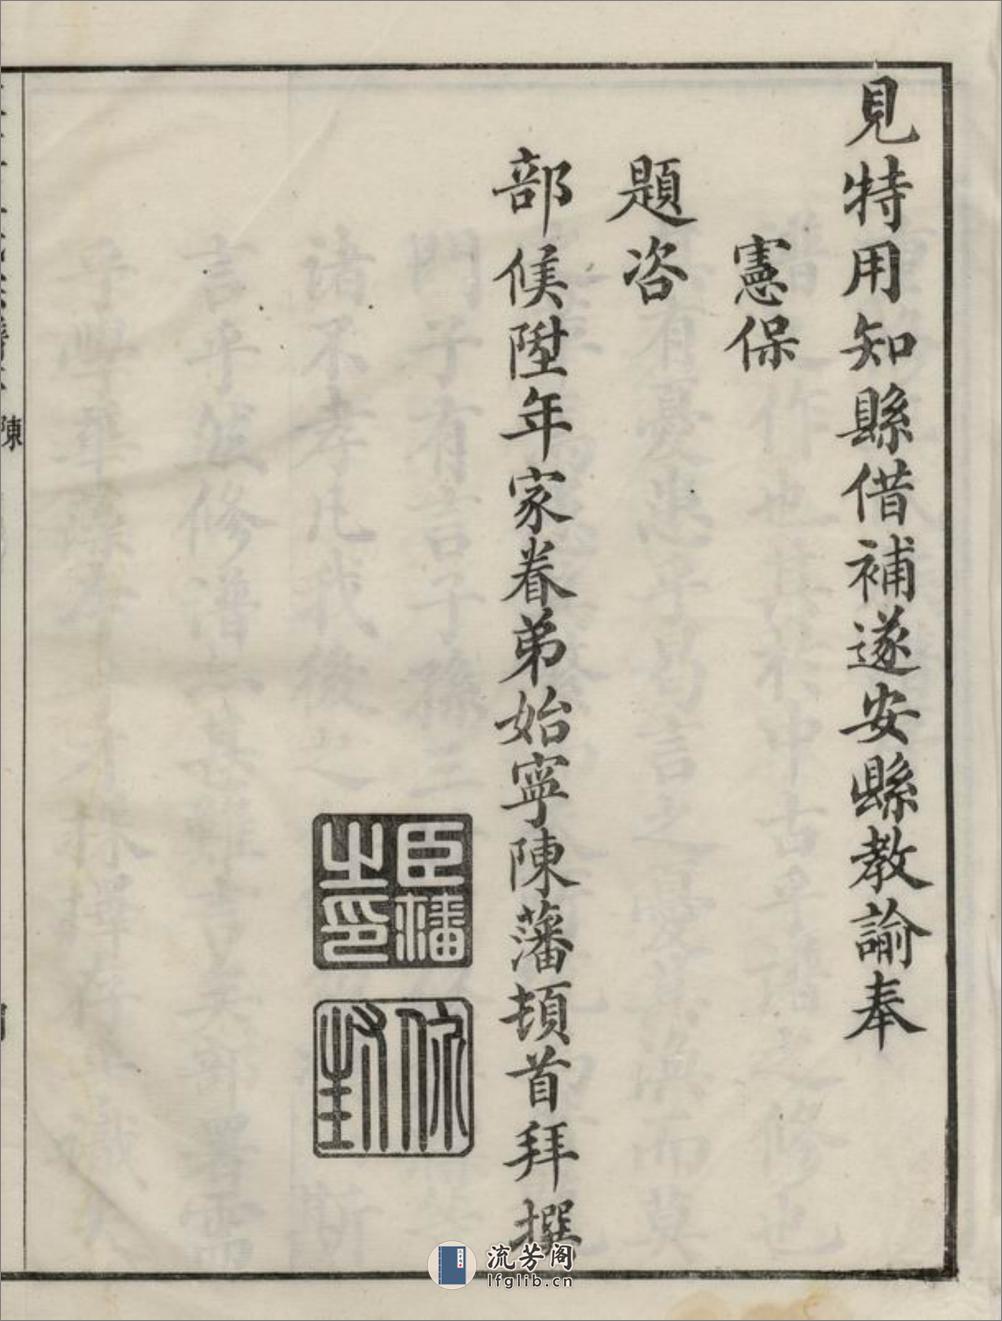 見特用知縣借補遂安縣教諭奉
憲保
題咨
部候陞年家眷弟始寧陳藩頓首拜撰
臣藩之印
陳
流芳阁
lfglib.cn